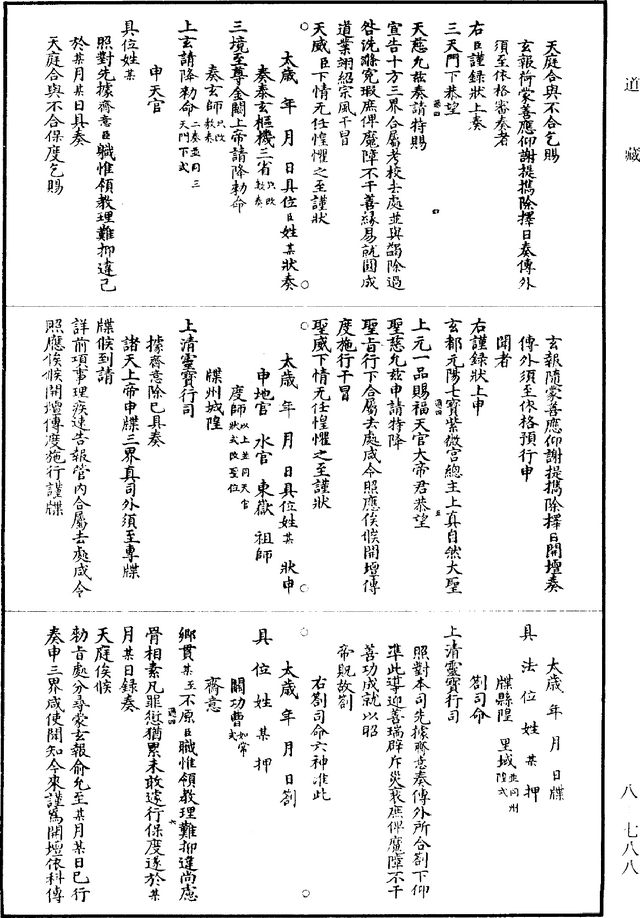 道藏
天庭合與不合乞賜
玄報荷蒙善應仰謝提攜除擇日奏傳外
須至依格審奏者
右臣謹錄狀上奏
三天門下恭望
天慈允茲奏請特賜
宣告十方三界合屬考校去處並與蠲除過
咎洗滌寃瑕庶俾魔障不干善緣易就圓成
道業翊紹宗風干冒
天威臣下情无任惶懼之至謹狀
太歲年月日具位臣姓某狀奏
奏泰玄樞機三省只改敕奏
三境至尊金闕上帝請降勑命
奏玄師只改敕奏
上玄請降勑命二奏並同三天門下式
申天官
具位姓某
照對先據齋意臣職惟領教理難抑違已
於某月某日具奏
天庭合與不合保度乞賜
玄報隨蒙善應仰謝提攜除擇日開壇奏
傳外須至依格預行申
聞者
右謹錄狀上申
玄都元陽七寶紫微宮總主上真自然大聖
上元一品賜福天官大帝君恭望
聖慈允茲申請特降
聖旨行下合屬去處咸令照應俟候開壇傳
度施行干冒
聖威下情无任惶懼之至謹狀
太歲年月日具位姓某狀申
申地官水官東嶽祖師
度師以上並同天官狀式改聖位
牒州城隍
上清靈寶行司
據齋意除已具奏
諸天上帝申牒三界真司外須至專牒
牒候到請
詳前項事理疾速告報管內合屬去處咸令
照應俟候開壇傳度施行謹牒
太歲年月日牒
具法位姓某押
牒縣隍里域並同州隍式
劄司命
上清靈寶行司
照對本司先據齋意奏傳外所合劄下仰
準此導迎善瑞辟斥災衰庶俾魔障不干
善功成就以昭
帝貺故劄
右劄司命六神准此
太歲年月日劄
具位姓某押
關功曹如常式
齋意
鄉貫某至不原臣職惟領教理難抑違尚慮
骨相素凡罪愆猶累未敢遽行保度遂於某
月某日錄奏
天庭俟候
勑旨處分尋蒙玄報俞允至某月某日已行
奏申三界咸使聞知今來謹為開壇依科傳
八·七八八